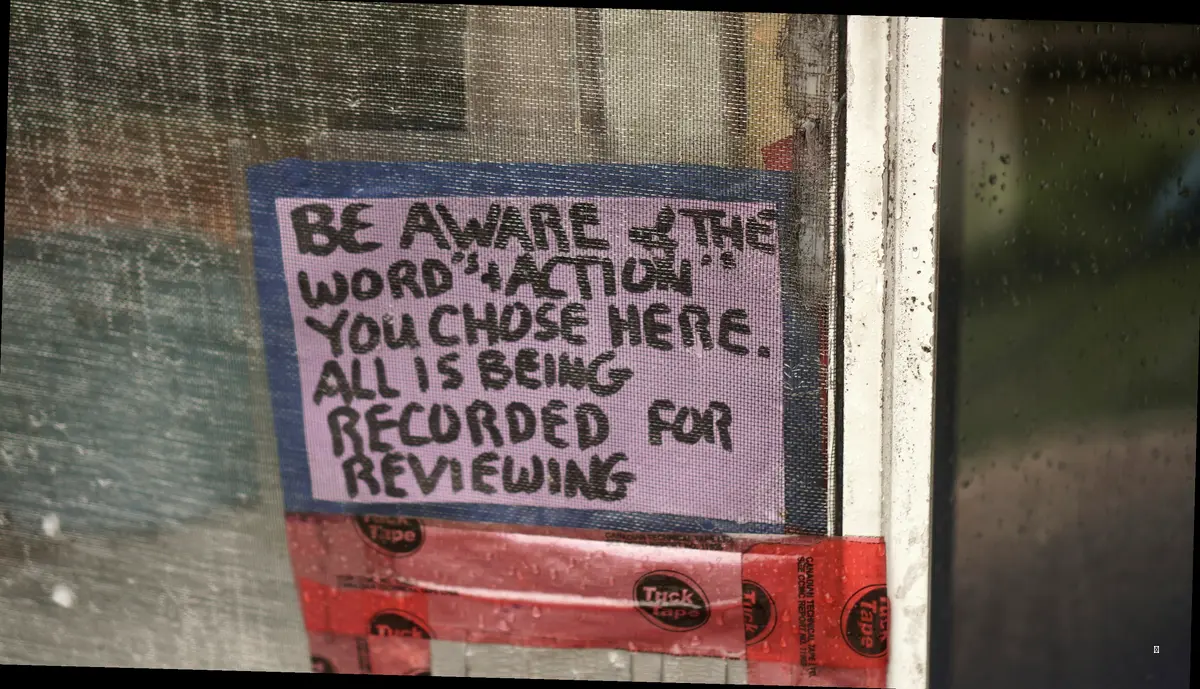 BE AWARE of THE
WORD"s & ACTION"s
YOU CHOSE HERE.
ALL IS BEING
RECORDED FOR
REVIEWING
Tuck
Tape
Tuck
Tape
Tuck
Tuck
Tape
Tuck